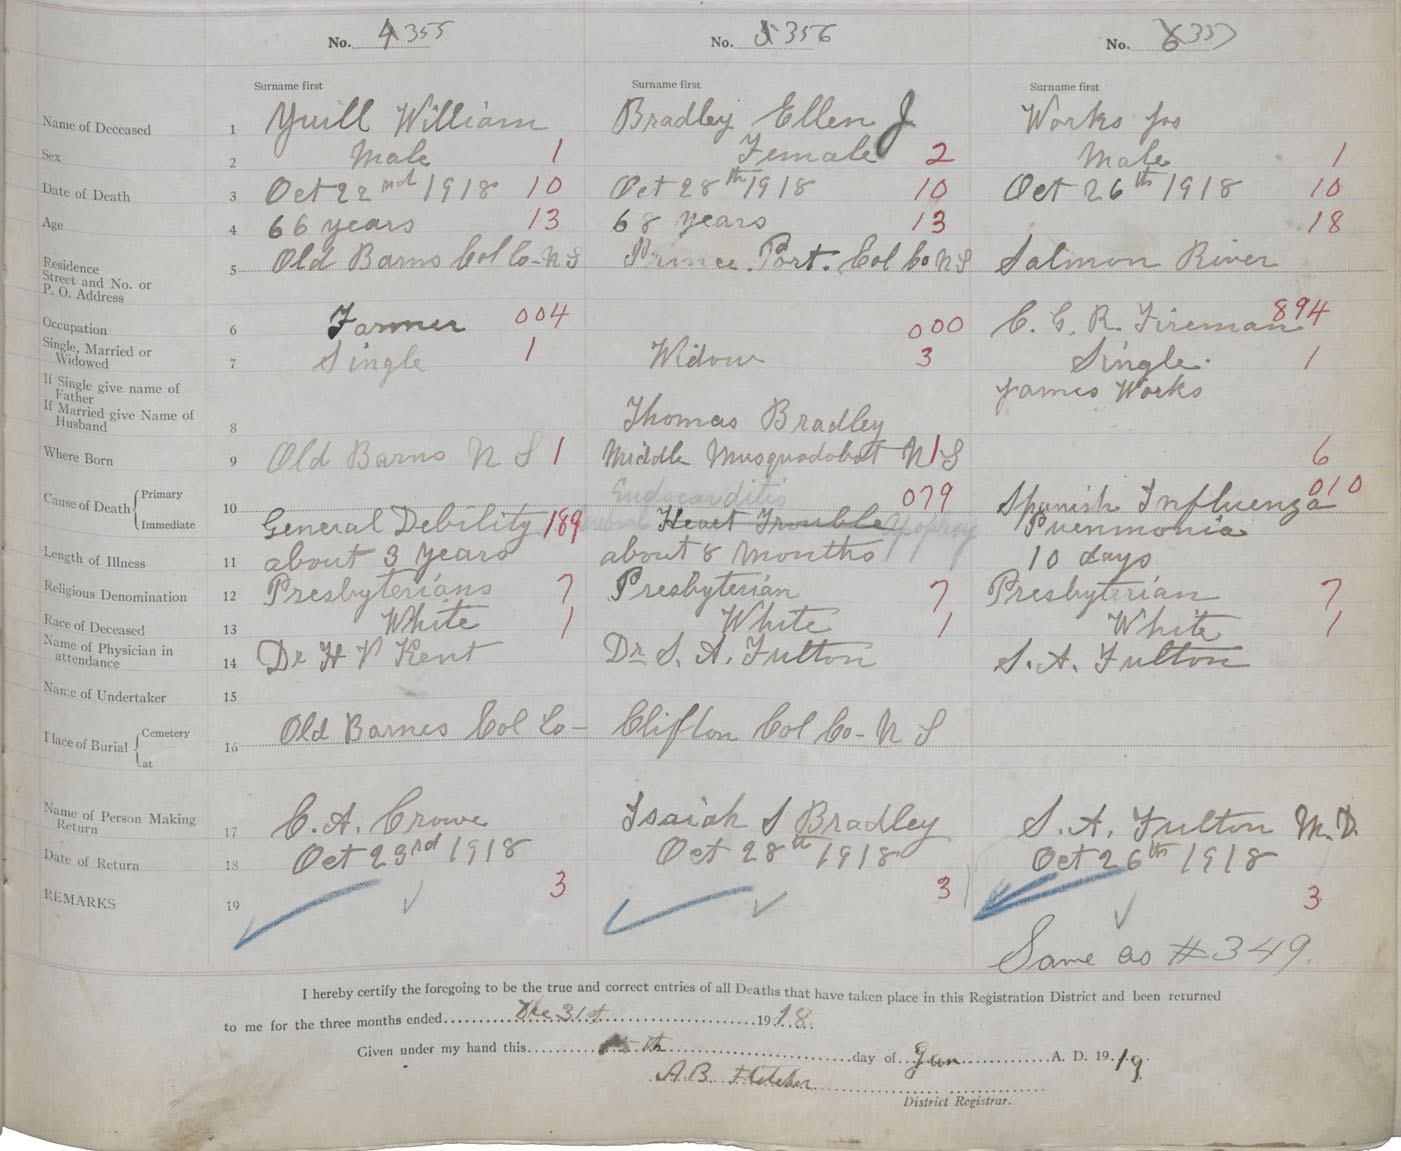 No. 4 355 No. 5 356 No. 6 357
Surname first Surname first Surname first
Name of Deceased 1 Yuill William Bradley Ellen J Works Jas
Sex 2 Male 1 Female 2 Male 1
Date of Death 3 Oct 22nd 1918 10 Oct 28th 1918 10 Oct 26th 1918 10
Age 4 66 years 13 68 years 13 18
Residence
Street and No. or
P. O. Address
5 Old Barns Col Co- N S Prince Port. Col Co N S Salmon River
Occupation 6 Farmer 004 000 C. G. R. Fireman 894
Single, Married or
Widowed
7 Single 1 Widow 3 Single. 1
If Single give name of
Father
James Works
If Married give Name of
Husband
8 Thomas Bradley
Where Born 9 Old Barns N S 1 Middle Musquodobot N S 1 6
Cause of Death Primary 10 Endocarditis 079 Spanish Influenza 010
Immediate General Debility 189 Heart Trouble Apoplexy Puenmonia
Length of Illness 11 about 3 years about 8 months 10 days
Religious Denomination 12 Presbyterians 7 Presbyterian 7 Presbyterian 7
Race of Deceased 13 White 1 White 1 White 1
Name of Physician in
attendance
14 Dr H V Kent Dr S. A. Fulton S. A. Fulton
Name of Undertaker 15
Place of Burial Cemetery
at
16 Old Barnes Col Co- Clifton Col Co- N S
Name of Person Making
Return
17 C. A. Crowe Isaiah S Bradley S. A. Fulton M. D.
Date of Return 18 Oct 23rd 1918 Oct 28th 1918 Oct 26th 1918
REMARKS 19 3 3 3
Same as #349.
I hereby certify the foregoing to be the true and correct entries of all Deaths that have taken place in this Registration District and been returned
to me for the three months ended Dec 31st 1918.
Given under my hand this th day of Jan A. D. 1919.
A. B. Fletcher
District Registrar.